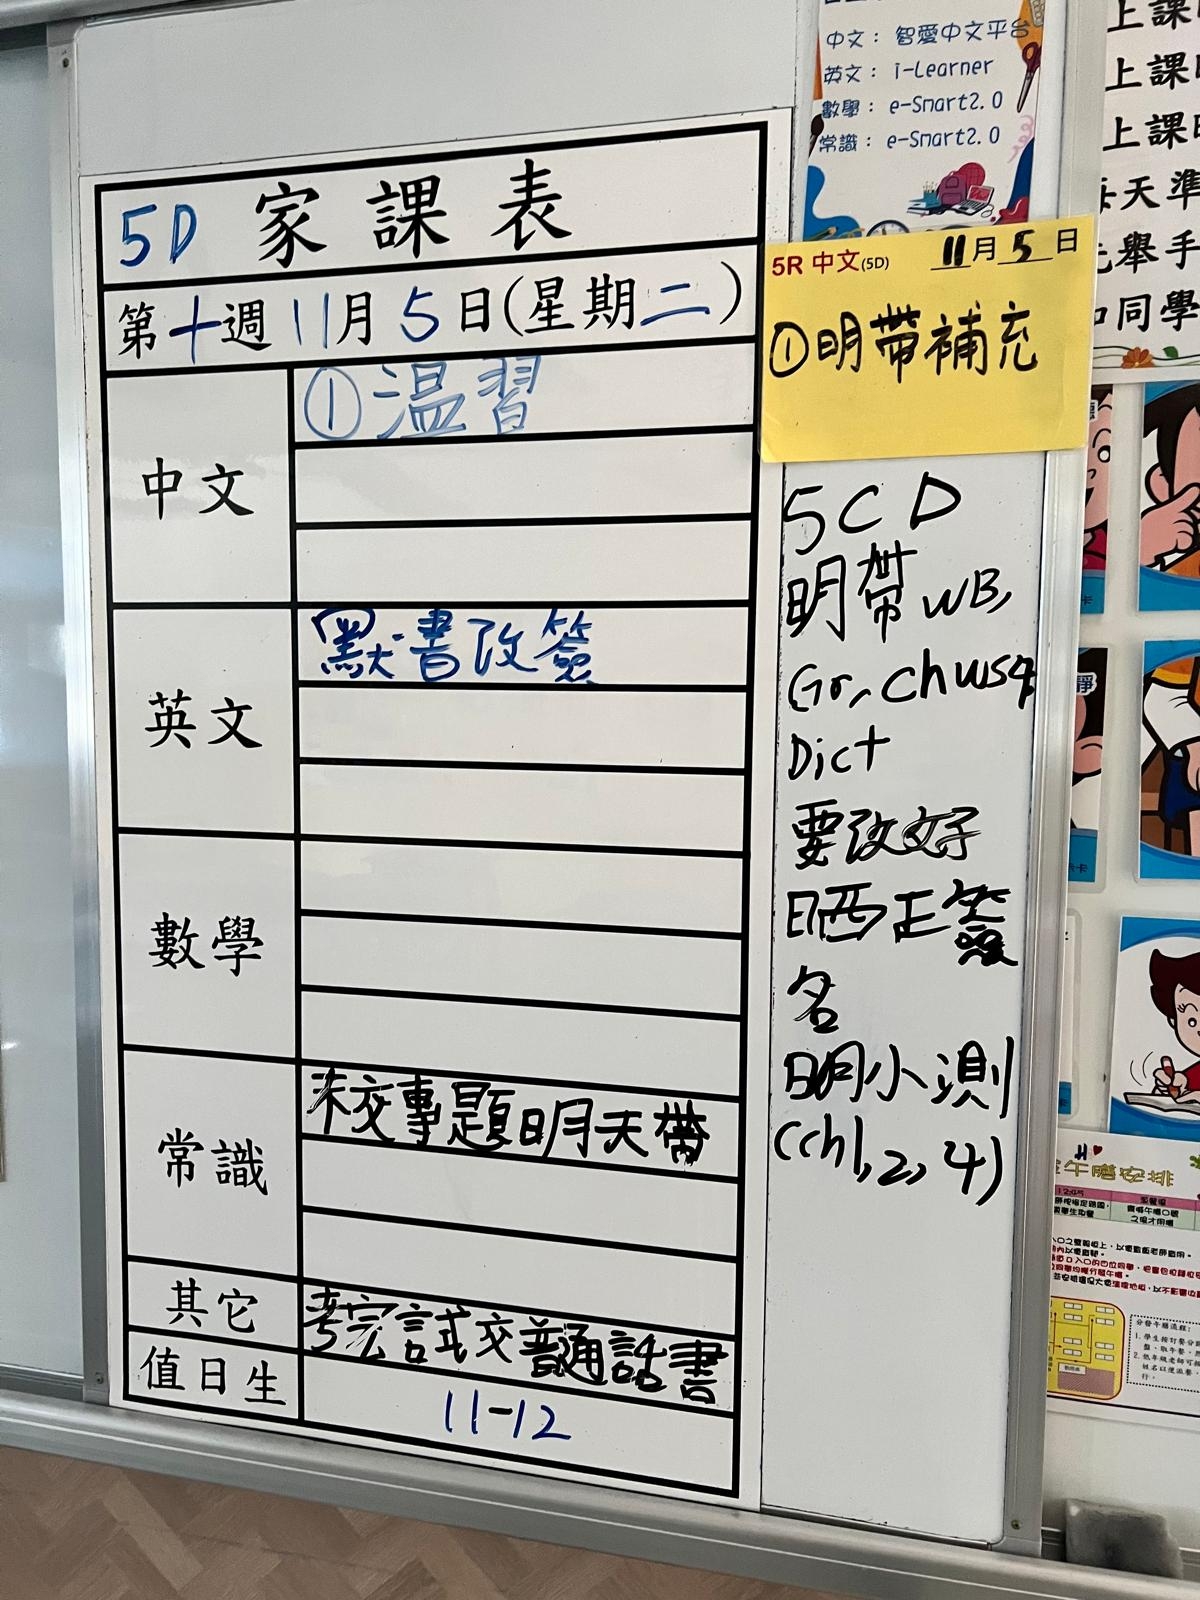 5D 家課表
第十週 11月5日(星期二)
中文
①温習
英文
默書改簽
數學
常識
未交專題明天帶
其它
考完試交普通話書
值日生
11-12
中文： 智愛中文平台
英文： i-Learner
數學： e-Smart2.0
常識： e-Smart2.0
5R 中文(5D) 11月5日
①明帶補充
5CD
明帶WB,
Gr, ch WS4
Dict
要改好
晒正簽
名
明小測
(ch1,2,4)
上課
上課
上課
每天準
舉手
同學
午膳安排